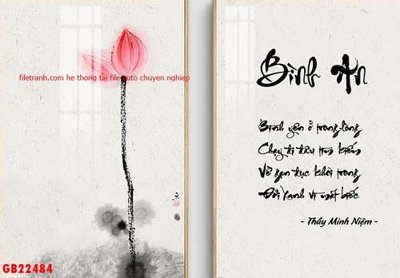 filetranh.com he thong tai file auto chuyen nghiep
Bình An
Bình yên ở trong lòng
Chạy đi đâu tìm kiếm
Về gạn đục khơi trong
Đời xanh vì mắt biếc
- Thầy Minh Niệm -
GB22484